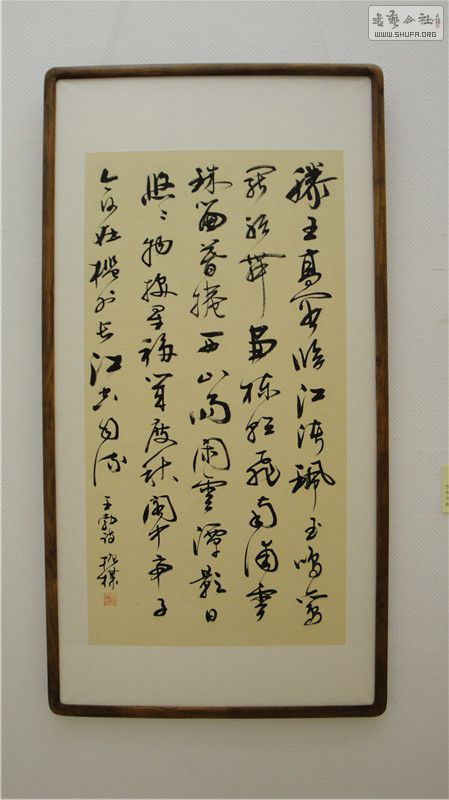 書藝公社
WWW.SHUFA.ORG
滕王高閣臨江渚珮玉鳴鸞
罷歌舞畫棟朝飛南浦雲
珠簾暮捲西山雨閑雲潭影日
悠悠物換星移幾度秋閣中帝子
今何在檻外長江空自流
王勃詩